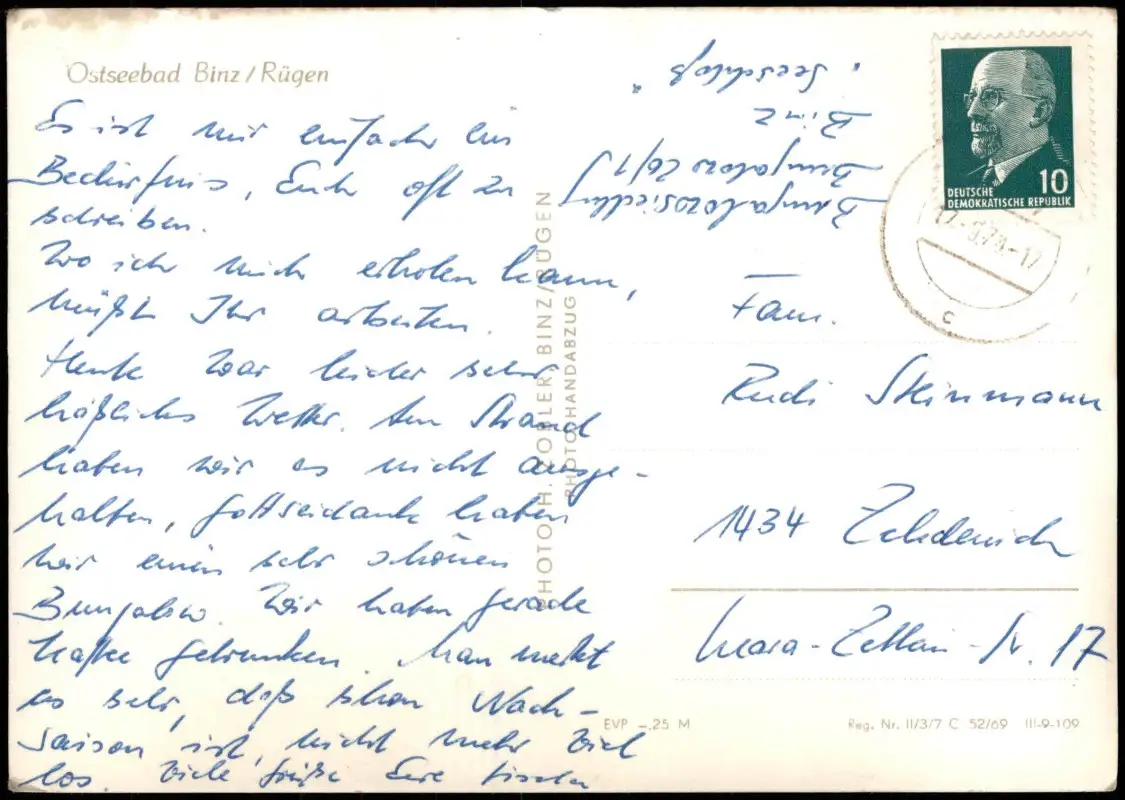 Ostseebad Binz/Rügen
Es ist mir einfach ein
Bedürfnis, Euch oft zu
schreiben.
Wo ich mich erholen kann,
müßt Ihr arbeiten.
Heute war leider sehr
häßliches Wetter. Am Strand
haben wir es nicht ausge-
halten, Gottseidank haben
wir einen sehr schönen
Bungalow. Wir haben gerade
Kaffee getrunken. Man merkt
es sehr, daß schon Nach-
saison ist, nicht mehr viel
los. Viele Grüße Eure
PHOTO: H. BINZ/RÜGEN
PHOTO-HANDABZUG
Bungalowsiedlung
Bungalow 26/1
Binz
"Seeschloß"
DEUTSCHE
DEMOKRATISCHE REPUBLIK
10
c
Fam.
Rudi Steinmann
1434 Zehdenick
Clara-Zetkin-Str. 17
EVP -,25 M
Reg. Nr. II/3/7 C 52/69 III-9-109